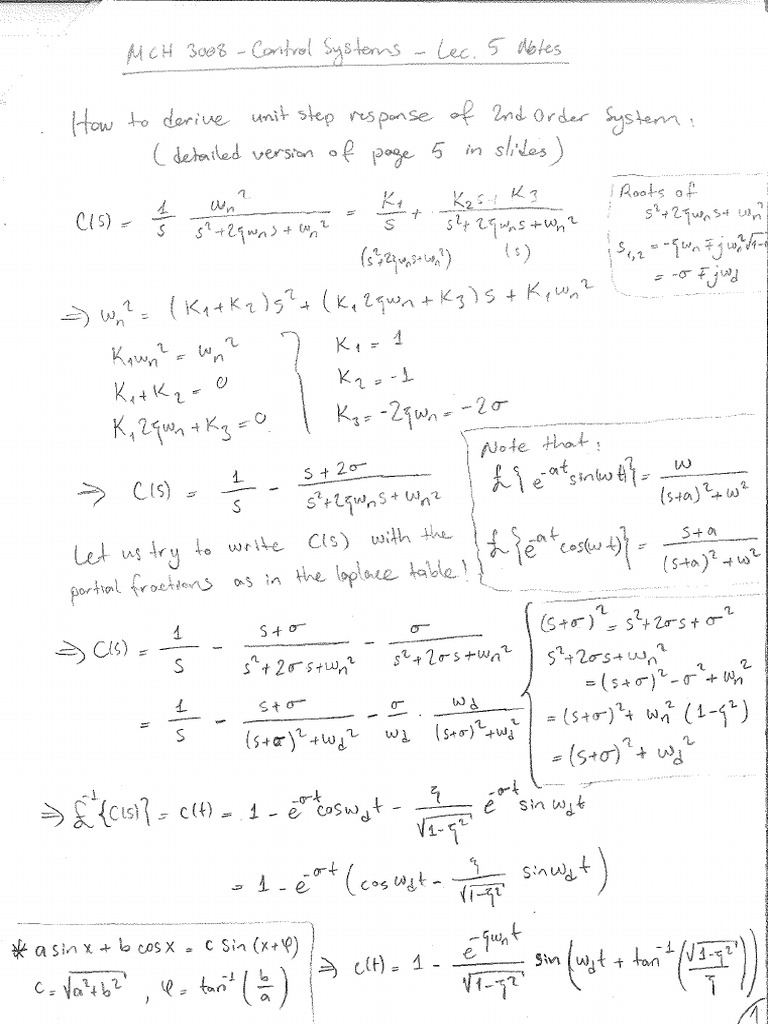 MCH 3008 - Control Systems - Lec. 5 Notes
How to derive unit step response of 2nd Order System:
(detailed version of page 5 in slides)
C(s) = 1/s ωn²/(s²+2ζωns+ωn²) = K1/s + (K2s + K3)/(s²+2ζωns+ωn²)
(s²+2ζωns+ωn²) (s)
Roots of
s²+2ζωns+ωn²
s1,2 = -ζωn ∓ jωn²√1-
= -σ ∓ jωd
⇒ ωn² = (K1+K2)s² + (K1 2ζωn + K3)s + K1ωn²
K1ωn² = ωn²
K1+K2 = 0
K1 2ζωn + K3 = 0
K1 = 1
K2 = -1
K3 = -2ζωn = -2σ
⇒ C(s) = 1/s - (s+2σ)/(s²+2ζωns+ωn²)
Note that:
£{e^-at sin(ωt)} = ω/((s+a)²+ω²)
£{e^-at cos(ωt)} = (s+a)/((s+a)²+ω²)
Let us try to write C(s) with the
partial fractions as in the laplace table!
⇒ C(s) = 1/s - (s+σ)/(s²+2σs+ωn²) - σ/(s²+2σs+ωn²)
= 1/s - (s+σ)/((s+σ)²+ωd²) - σ/ωd · ωd/((s+σ)²+ωd²)
(s+σ)² = s²+2σs+σ²
s²+2σs+ωn²
= (s+σ)² - σ² + ωn²
= (s+σ)² + ωn² (1-ζ²)
= (s+σ)² + ωd²
⇒ £^-1{C(s)} = c(t) = 1 - e^-σt cosωdt - ζ/√(1-ζ²) e^-σt sin ωdt
= 1 - e^-σt (cosωdt - ζ/√(1-ζ²) sinωdt)
* a sin x + b cos x = c sin (x+φ)
c = √(a²+b²), φ = tan^-1 (b/a)
⇒ c(t) = 1 - e^-ζωnt/√(1-ζ²) sin (ωdt + tan^-1 (√(1-ζ²)/ζ))
1